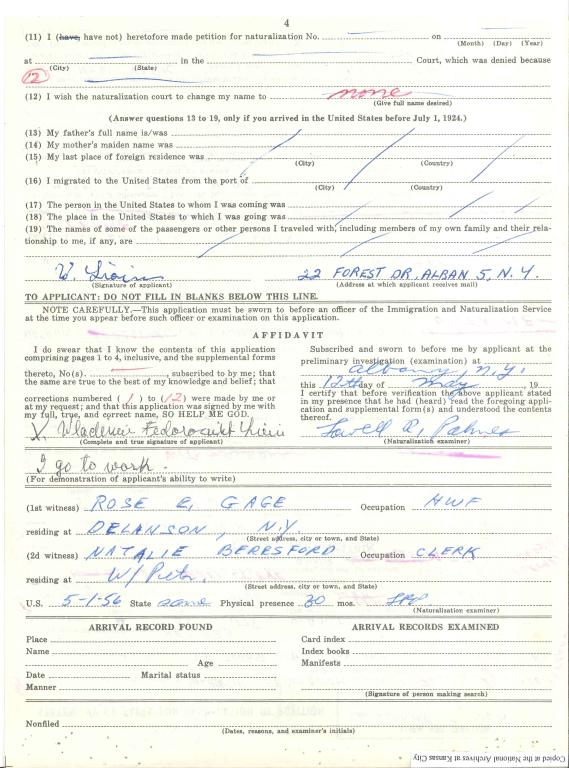 4
(11) I (have, have not) heretofore made petition for naturalization No. on
(Month) (Day) (Year)
at in the Court, which was denied because
(City) (State)
12
(12) I wish the naturalization court to change my name to none
(Give full name desired)
(Answer questions 13 to 19, only if you arrived in the United States before July 1, 1924.)
(13) My father's full name is/was
(14) My mother's maiden name was
(15) My last place of foreign residence was
(City) (Country)
(16) I migrated to the United States from the port of
(City) (Country)
(17) The person in the United States to whom I was coming was
(18) The place in the United States to which I was going was
(19) The names of some of the passengers or other persons I traveled with, including members of my own family and their rela-
tionship to me, if any, are
W.
22 FOREST DR, ALBAN 5, N.Y.
(Signature of applicant) (Address at which applicant receives mail)
TO APPLICANT: DO NOT FILL IN BLANKS BELOW THIS LINE.
NOTE CAREFULLY.—This application must be sworn to before an officer of the Immigration and Naturalization Service
at the time you appear before such officer or examination on this application.
AFFIDAVIT
I do swear that I know the contents of this application
comprising pages 1 to 4, inclusive, and the supplemental forms
thereto, No(s). , subscribed to by me; that
the same are true to the best of my knowledge and belief; that
corrections numbered (1) to (12) were made by me or
at my request; and that this application was signed by me with
my full, true, and correct name, SO HELP ME GOD.
X
(Complete and true signature of applicant)
Subscribed and sworn to before me by applicant at the
preliminary investigation (examination) at
Albany, N.Y.
this 12th day of May, 19
I certify that before verification the above applicant stated
in my presence that he had (heard) read the foregoing appli-
cation and supplemental form(s) and understood the contents
thereof.
Lowell R. Palmer
(Naturalization examiner)
I go to work.
(For demonstration of applicant's ability to write)
(1st witness) ROSE E. GAGE Occupation HWF
residing at DELANSON, N.Y.
(Street address, city or town, and State)
(2d witness) NATALIE BERESFORD Occupation CLERK
residing at W/ Petr.
(Street address, city or town, and State)
U.S. 5-1-56 State same Physical presence 30 mos.
(Naturalization examiner)
ARRIVAL RECORD FOUND
Place
Name
Age
Date Marital status
Manner
ARRIVAL RECORDS EXAMINED
Card index
Index books
Manifests
(Signature of person making search)
Nonfiled
(Dates, reasons, and examiner's initials)
Copied at the National Archives at Kansas City